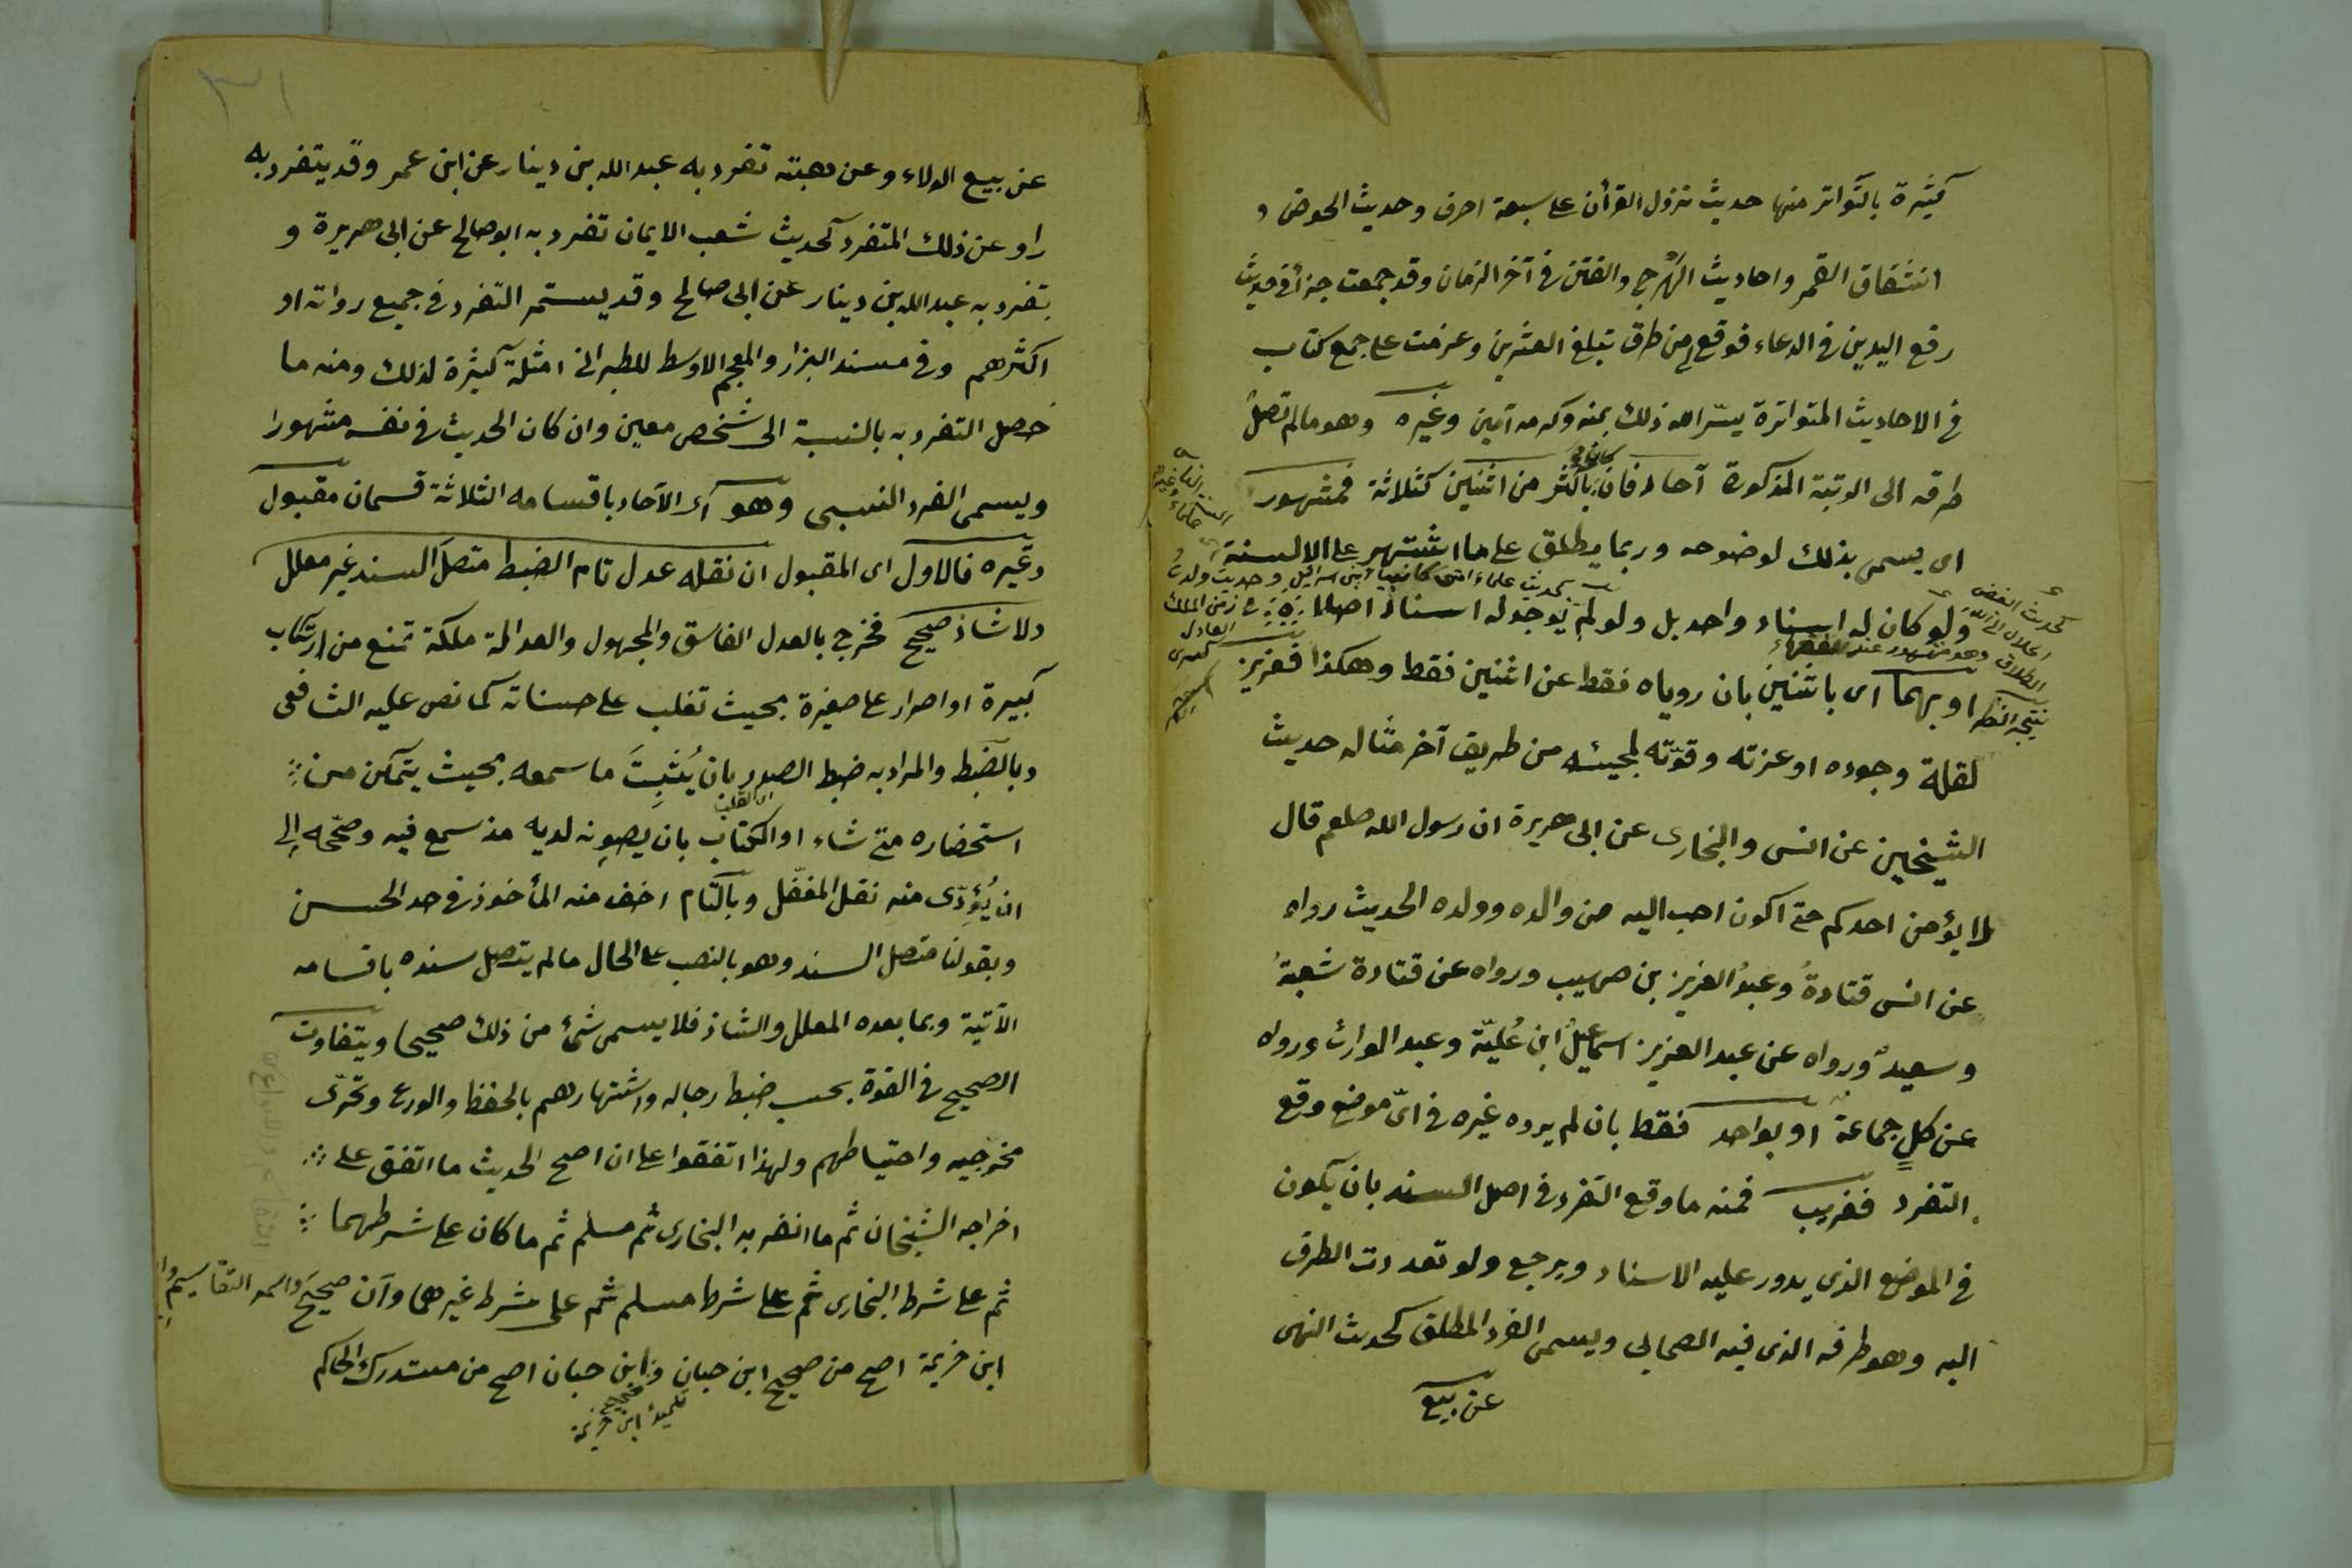 كثيرة بالتواتر منها حديث نزول القرأن على سبعة احرف وحديث الحوض و
انشقاق القمر واحاديث الهَرْج والفتن في آخر الزمان وقد جمعت جزأ في حديث
رفع اليدين في الدعاء فوقع لي من طرق تبلغ العشرين وعزمت على جمع كتاب
في الاحاديث المتواترة يسّر الله ذلك بمنه وكرمه آمين وغيره وهو مالم تصل
طرقه الى الرتبة المذكورة آحاد فان كان باكثر من اثنين كثلاثة فمشهور
اى يسمى بذلك لوضوحه وربما يطلق على ما اشتهر على الالسنة
بحديث علماء امتى كانبياء بنى اسرائيل وحديث ولدتُ
ولو كان له اسناد واحد بل ولو لم يوجد له اسناد اصلا في زمن الملك
العادل كسرى
كحديث ابغض الحلال الى الله الطلاق وهو مشهور عند الفقهاء
او بهما اى باثنين بان روياه فقط عن اثنين فقط وهكذا فعزيز
لقلة وجوده او عزته وقوّته لمجيئه من طريق آخر مثاله حديث
الشيخين عن انس والبخارى عن ابى هريرة ان رسول الله صلعم قال
لا يؤمن احدكم حتى اكون احب اليه من والده وولده الحديث رواه
عن انس قتادةُ وعبدُ العزيز بن صهيب ورواه عن قتادة شعبةُ
وسعيدٌ ورواه عن عبد العزيز اسماعيلُ ابن عُليّة وعبد الوارث ورواه
عن كلٍ جماعة او بواحد فقط بان لم يروه غيره في اىّ موضع وقع
التفرد فغريب فمنه ما وقع التفرد في اصل السند بان يكون
في الموضع الذى يدور عليه الاسناد ويرجع ولو تعددت الطرق
اليه وهو طرفه الذى فيه الصحابى ويسمى الفرد المطلق كحديث النهى
عن بيع
٣١
عن بيع الولاء وعن هبته تفرد به عبد الله بن دينار عن ابن عمر وقد يتفرد به
راو عن ذلك المتفرد كحديث شعب الايمان تفرد به ابو صالح عن ابى هريرة و
تفرد به عبد الله بن دينار عن ابى صالح وقد يستمر التفرد في جميع رواته او
اكثرهم وفي مسند البزار والمعجم الاوسط للطبرانى امثلة كثيرة لذلك ومنه ما
حصل التفرد به بالنسبة الى شخص معين وان كان الحديث في نفسه مشهورا
ويسمى الفرد النسبى وهو اى الآحاد باقسامه الثلاثة قسمان مقبول
وغيره فالاول اى المقبول ان نقله عدل تام الضبط متصلَ السند غير معلل
ولا شاذ صحيح فخرج بالعدل الفاسق والمجهول والعدالة ملكة تمنع من ارتكاب
كبيرة او اصرار على صغيرة بحيث تغلب على حسناته كما نص عليه الشافعى
وبالضبط والمراد به ضبط الصدر بان يُثبِتَ ما سمعه بحيث يتمكن من
اى القلب
استحضاره متى شاء او الكتاب بان يصونه لديه مذ سمع فيه وصحّحه الى
ان يُؤدّى منه نقل المغفّل وبالتام اخف منه المأخوذ في حد الحسن
وبقولنا متصل السند وهو بالنصب على الحال مالم يتصل سنده باقسامه
الآتية وبما بعده المعلل والشاذ فلا يسمى شئ من ذلك صحيحا ويتفاوت
الصحيح في القوة بحسب ضبط رجاله واشتهارهم بالحفظ والورع وتحرّى
مخرجيه واحتياطهم ولهذا اتفقوا على ان اصح الحديث ما اتفق على
اخراجه الشيخان ثم ما انفرد به البخارى ثم مسلم ثم ما كان على شرطهما
ثم على شرط البخارى ثم على شرط مسلم ثم على شرط غيرهما وان صحيح
واسمه التقاسيم
ابن خزيمة اصح من صحيح ابن حبان وابن حبان اصح من مستدرك الحاكم
صحيح
تلميذ ابن خزيمة